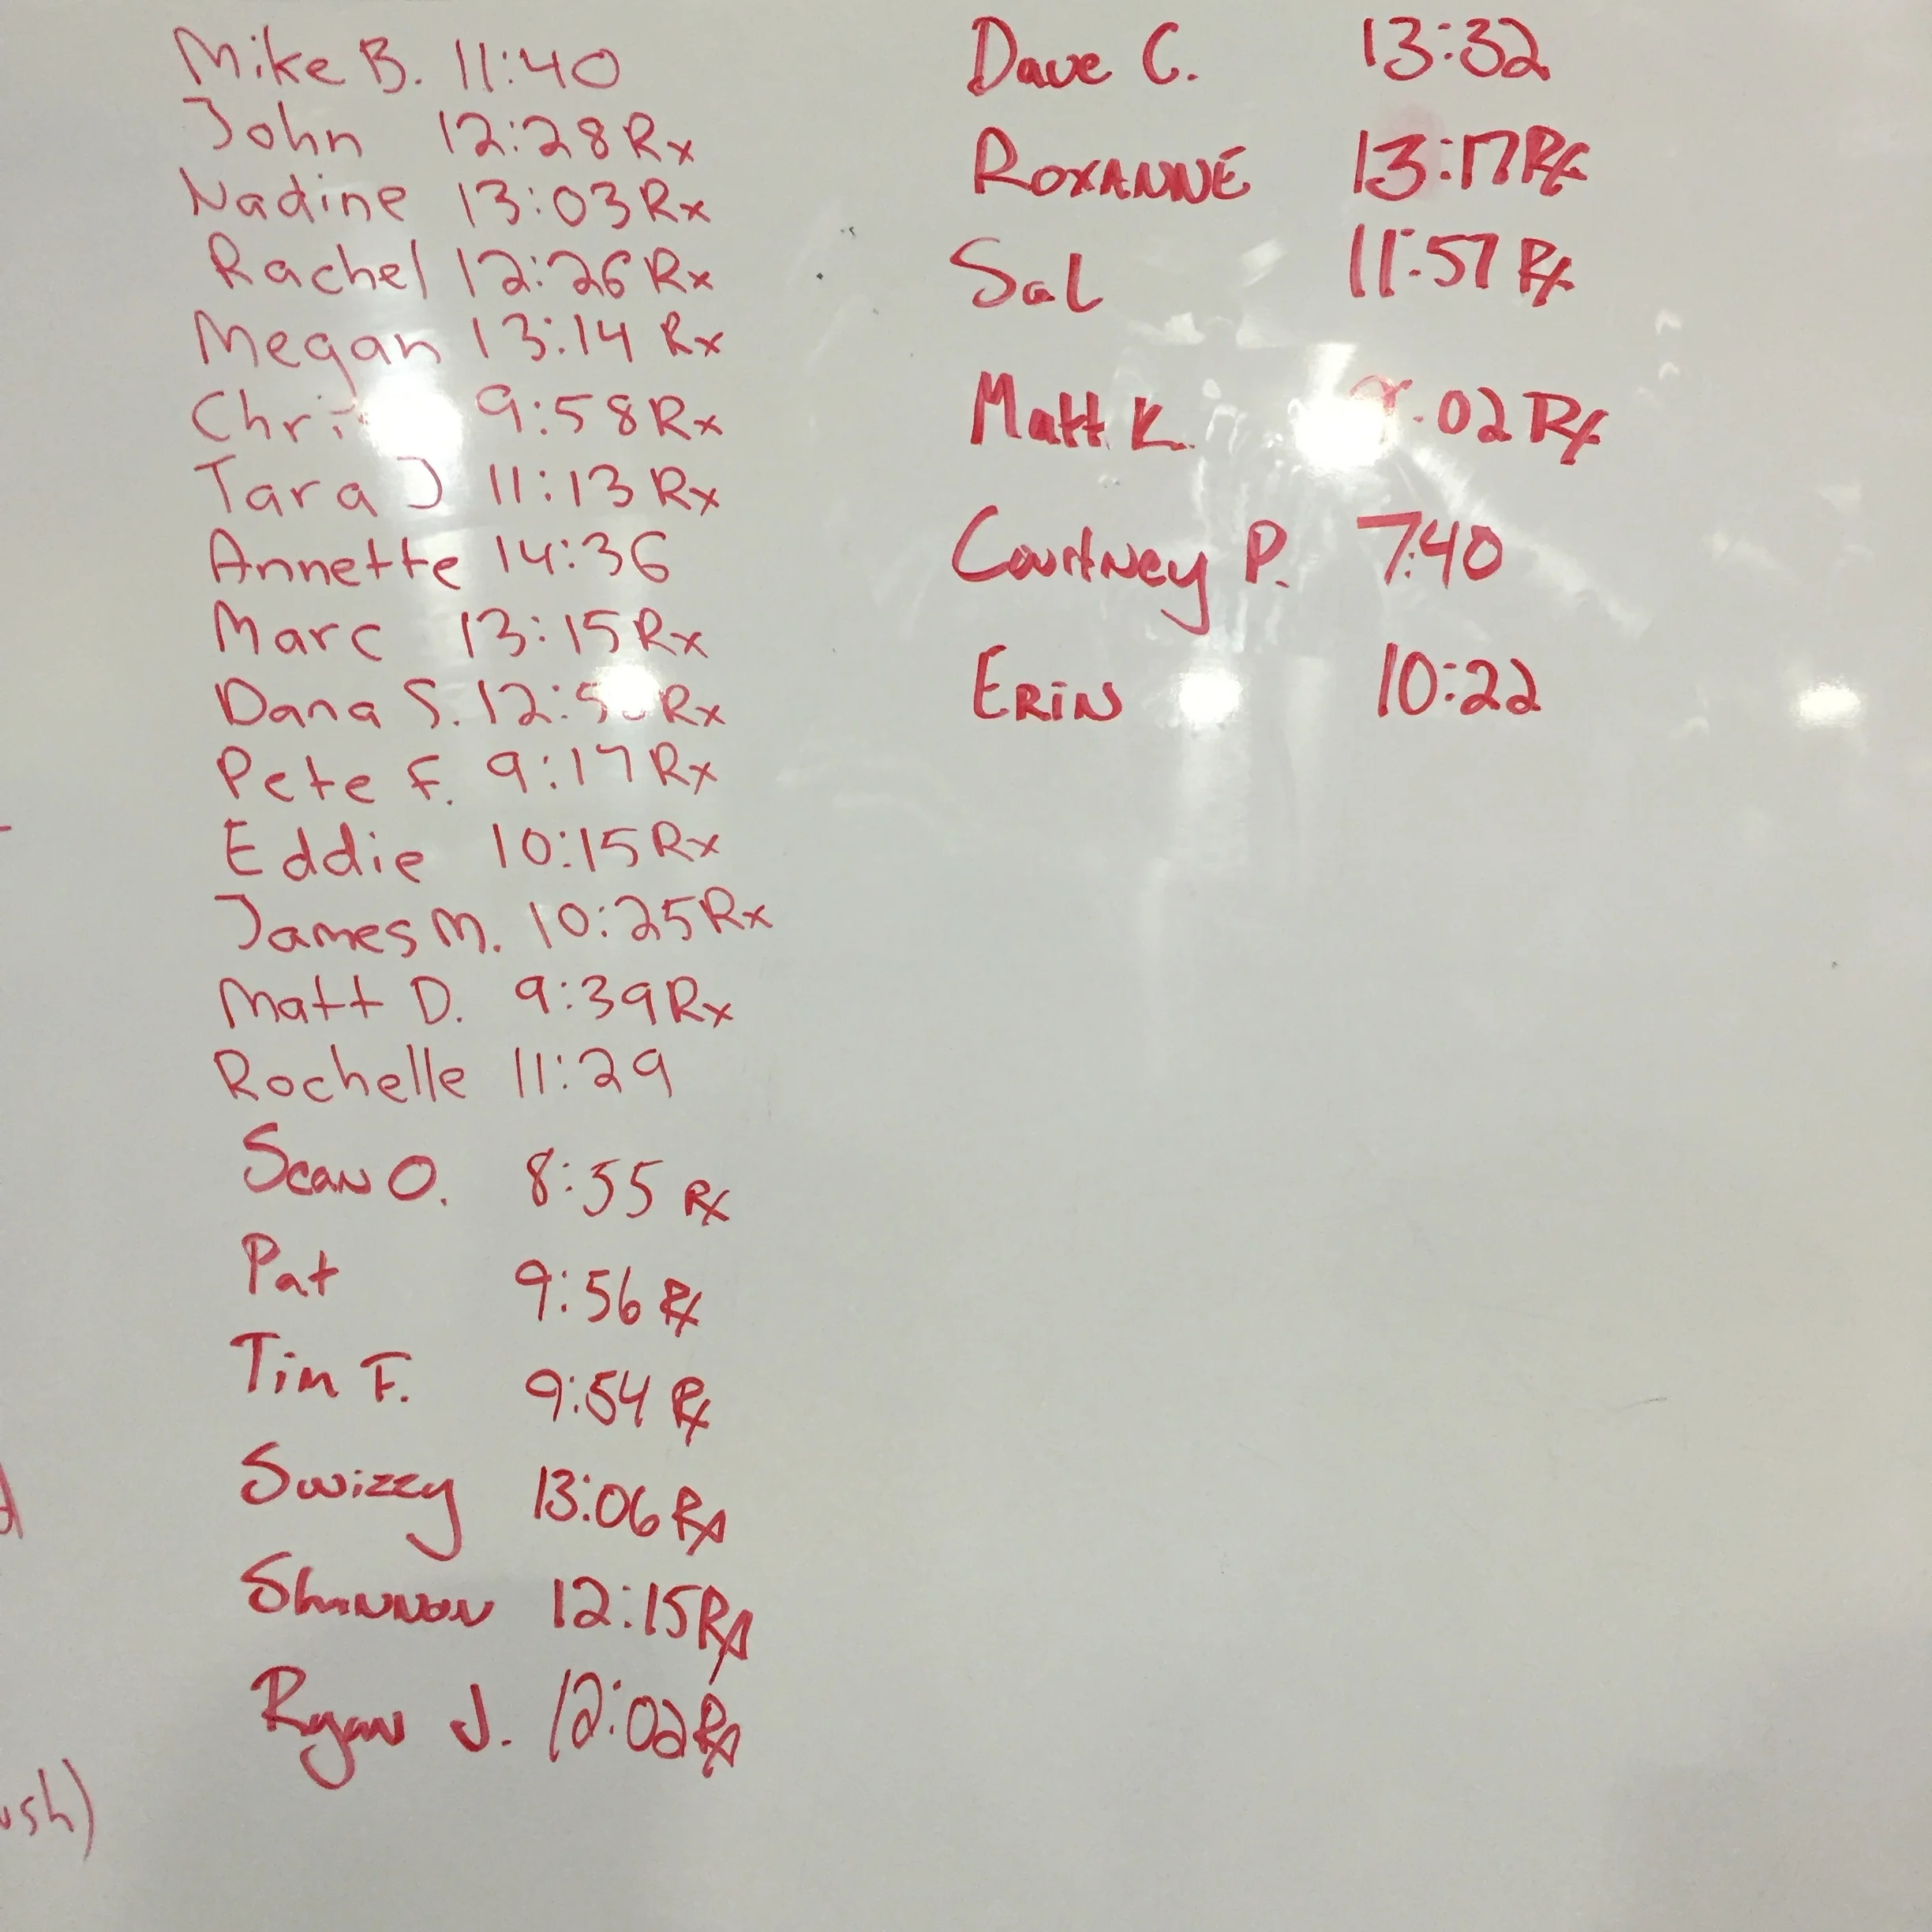 Mike B. 11:40
John 12:28 Rx
Nadine 13:03 Rx
Rachel 12:26 Rx
Megan 13:14 Rx
9:58 Rx
Tara J 11:13 Rx
Annette 14:36
Marc 13:15 Rx
Dana S. Rx
Pete F. 9:17 Rx
Eddie 10:15 Rx
James M. 10:25 Rx
Matt D. 9:39 Rx
Rochelle 11:29
Sean O. Rx
Pat 9:56 Rx
Tim F. 9:54 Rx
Swizzy 13:06 Rx
Shannon 12:15 Rx
Ryan J. 12:02 Rx
Dave C. 13:32
ROXANNE 13:17 Rx
Sal 11:57 Rx
Matt K. Rx
Courtney P. 7:40
ERiN 10:22